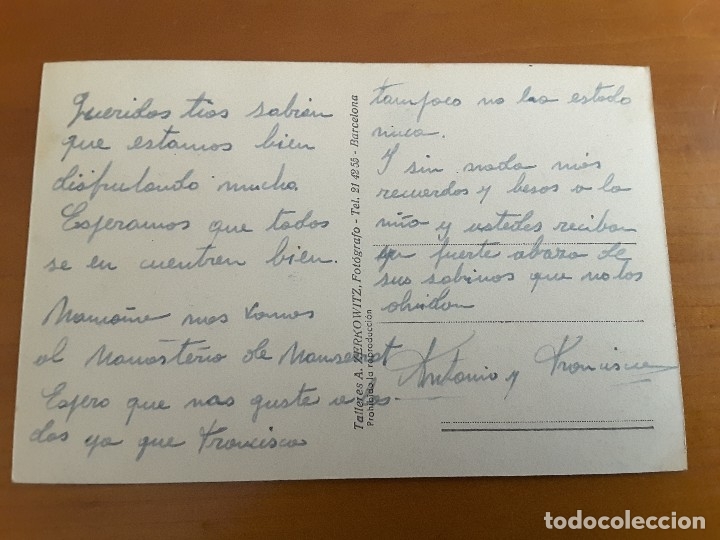 Queridos tios sabran
que estamos bien
disfrutando mucha
Esperamos que todos
se en cuentren bien.
Mamaña nos vamos
al Monasterio de Monserrat
Espero que nos guste a los
dos ya que Francisca
tampoco no ha estado
nuca.
I sin nada mas
recuerdos y besos a la
niña y ustedes reciban
un fuerte abazo de
sus sobinos que no los
olvidan
Antonio y Francisca
Talleres A. ZERKOWITZ, Fotógrafo - Tel. 21 42 55 - Barcelona
Prohibida la reproducción
todocoleccion
todocoleccion.net